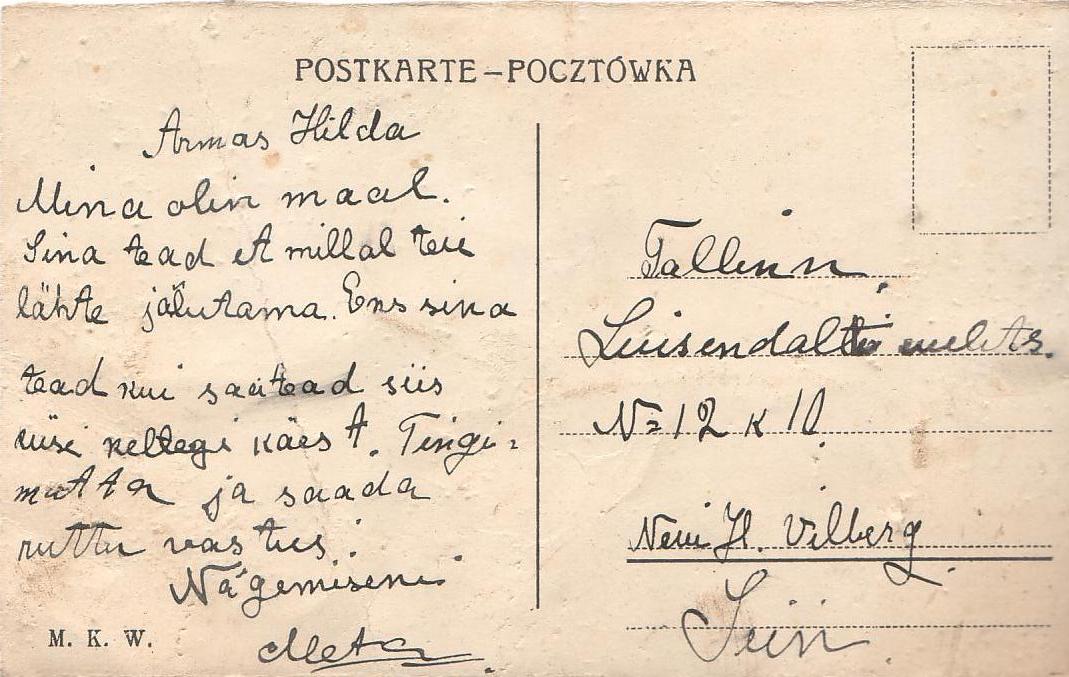 POSTKARTE–POCZTÓWKA
Armas Hilda
Mina olin maal.
Sina tead et millal teie
lähte jälutama. Ens sina
tead kui saatead siis
küsi kellegi käest. Tingi=
matta ja saada
ruttu vastus.
Nägemiseni
Meta
M. K. W.
Tallinn,
N=12 K 10
H. Vilberg
Siin